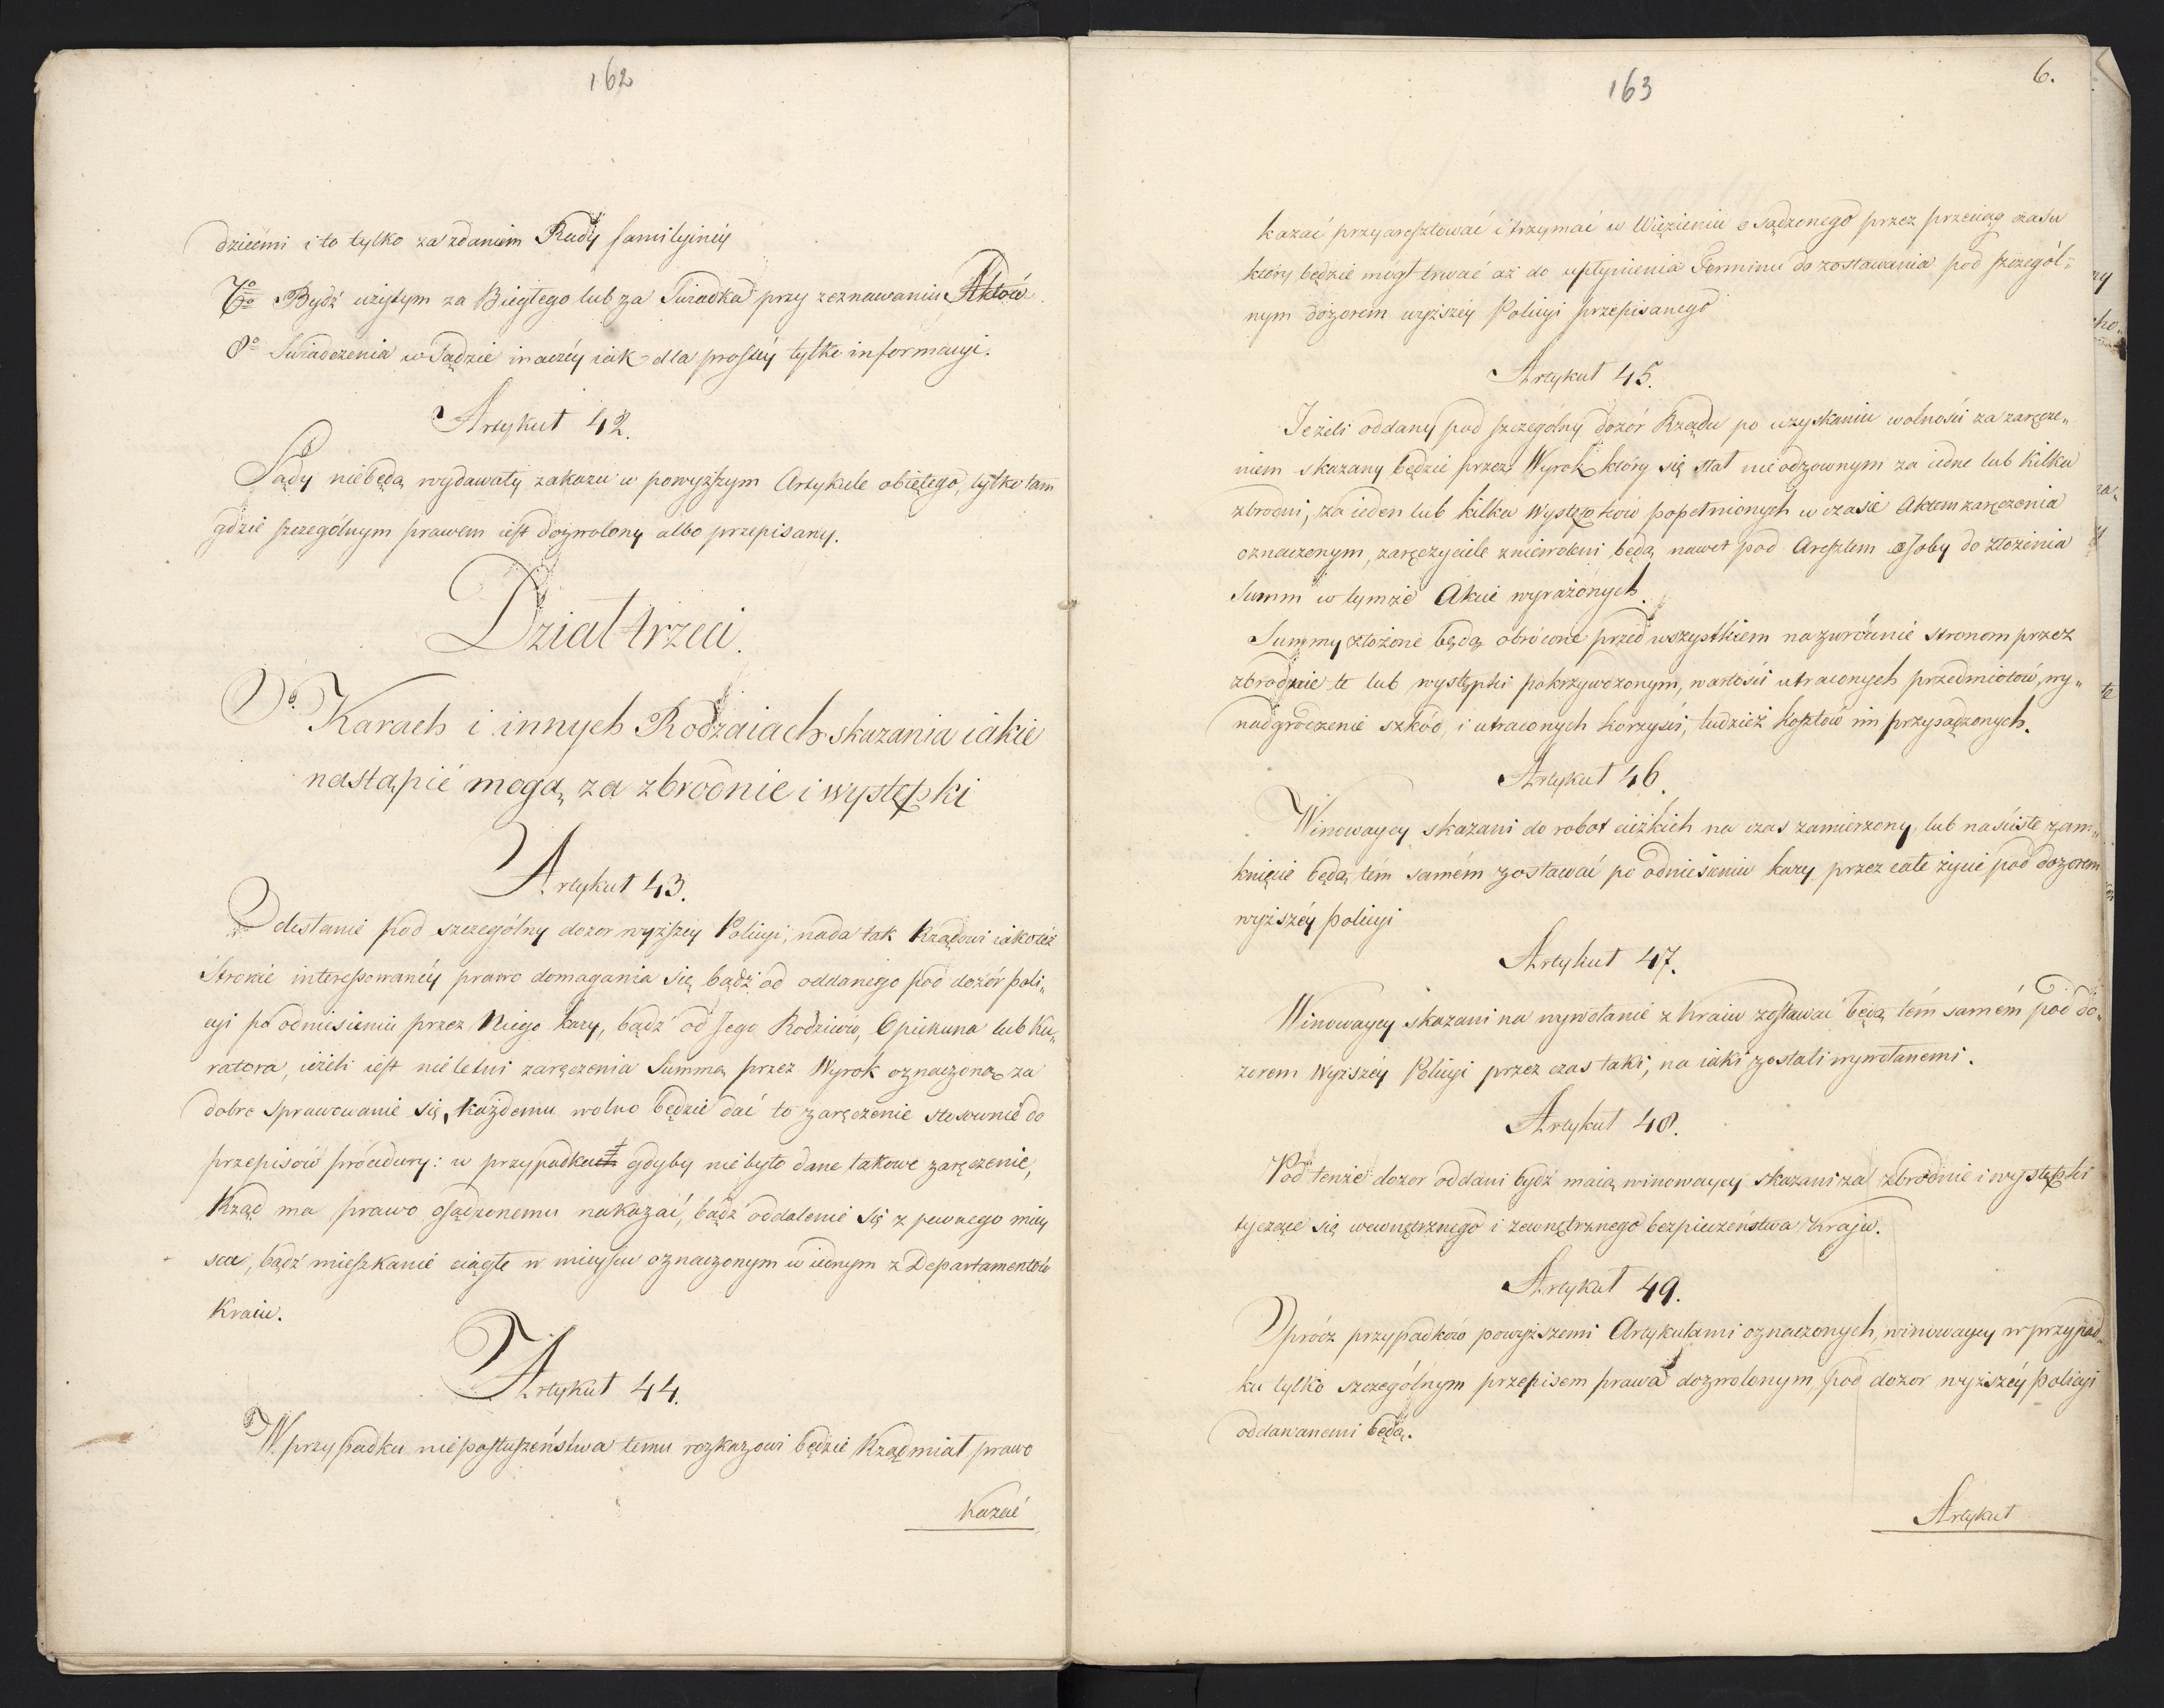 162
dziećmi i to tylko za zdaniem Rady familyinéy
7o Bydź użytym za Biegłego lub za Swiadka przy zeznawaniu Aktów
8o Swiadczenia w Sądzie inaczéy iak dla prostéy tylko informacyi.
Artykuł 42.
Sądy niebędą wydawały zakazu w powyższym Artykule obiętego, tylko tam
gdzie szczególnym prawem iest dozwolony albo przepisany.
Dział trzeci.
O Karach i innych Rodzaiach skazania iakie
nastąpić mogą za zbrodnie i występki
Artykuł 43.
Odesłanie pod szczególny dozor wyższey Policyi, nada tak Rządowi iakotéż
Stronie interessowanéy prawo domagania się bądź od oddanego pod dozór poli„
cyi po odniesieniu przez Niego kary, bądź od Jego Rodziców, Opiekuna lub Ku„
ratora, ieżeli iest nieletni zaręczenia Summą przez Wyrok oznaczoną za
dobre sprawowanie się, Każdemu wolno będzie dać to zaręczenie stosownie do
przepisów procedury: w przypadku gdyby niebyło dane takowe zaręczenie,
Rząd ma prawo osądzonemu nakazać, bądź oddalenie się z pewnego miey
sca, bądź mieszkanie ciągłe w mieyscu oznaczonym w iednym z Departamentów
Kraiu.
Artykuł 44.
W przypadku nieposłuszeństwa temu rozkazowi będzie Rząd miał prawo
Kazać
163
6.
kazać przyaresztować i trzymać w Więzieniu osądzonego przez przeciąg czasu
który będzie mógł trwać aż do upłynienia Terminu do zostawania pod szczegól„
nym dozorem wyższéy Policyi przepisanego
Artykuł 45.
Jeżeli oddany pod szczególny dozór Rządu po uzyskaniu wolności za zaręcze„
niem skazany będzie przez Wyrok który się stał nieodzownym za iedne lub kilka
zbrodni, za ieden lub kilka Występków popełnionych w czasie Aktem zaręczenia
oznaczonym, zaręczyciele zniewoleni będą nawet pod Aresztem osoby do złożenia
Summ w tymże Akcie wyrażonych.
Summy złożone będą obrócone przed wszystkiem na zwrócenie stronom przez
zbrodnie te lub występki pokrzywdzonym, wartości utraconych przedmiotów, wy„
nadgrodzenie szkód, i utraconych korzyści, tudzież kosztów im przysądzonych.
Artykuł 46.
Winowaycy skazani do robot cięzkich na czas zamierzony, lub na ściste zam„
knięcie będą tém samém zostawać po odniesieniu kary przez całe życie pod dozorem
wyższéy policyi
Artykuł 47.
Winowaycy skazani na wywołanie z kraiu zostawać będą tém samém pod do„
zorem Wyższéy Policyi przez czas taki, na iaki zostali wywołanemi.
Artykuł 48.
Pod tenże dozor oddani bydź maią winowaycy skazani za zbrodnie i występki
tyczące się wewnętrznego i zewnętrznego bezpieczeństwa Kraju.
Artykuł 49.
Oprócz przypadków powyższemi Artykułami oznaczonych, winowaycy w przypad„
ku tylko szczególnym przepisem prawa dozwolonym, pod dozor wyższéy policyi
oddawanemi będą.
Artykuł